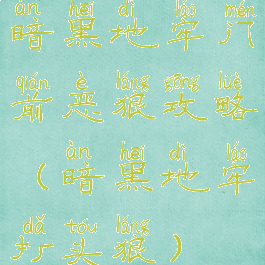 àn hēi dì láo mén
暗黑地牢门
qián è láng gōng lüè
前恶狠攻略
àn hēi dì láo
（暗黑地牢
dǎ tóu láng
打头狼）